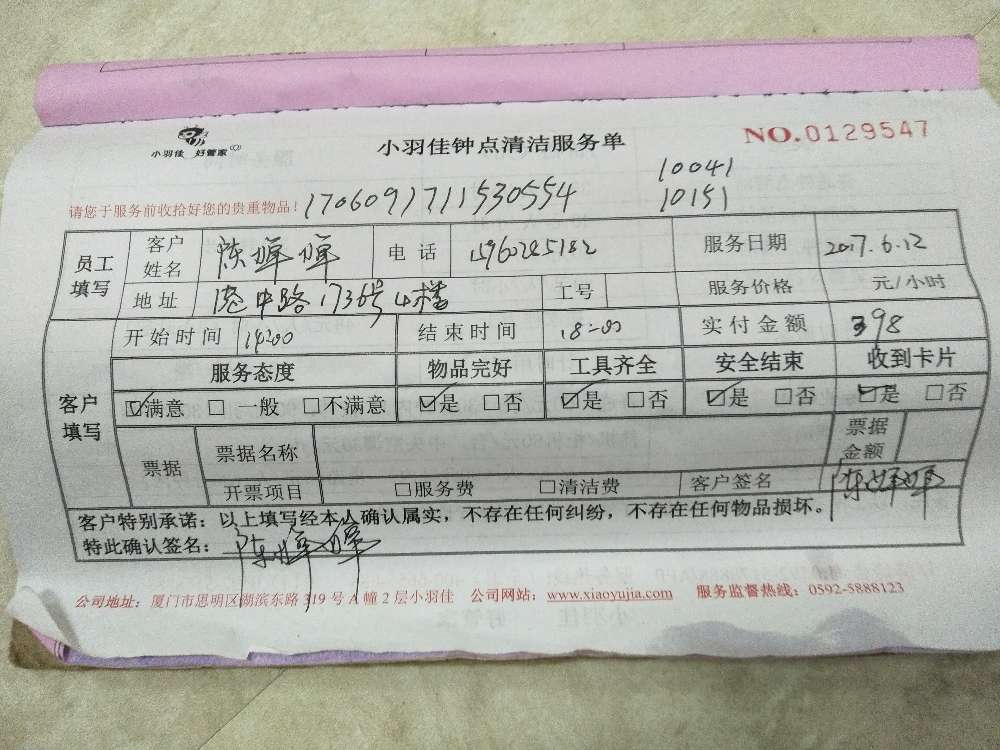 小羽佳 好管家
小羽佳钟点清洁服务单
NO.0129547
10041
请您于服务前收拾好您的贵重物品！ 1706091711530554 10151
员工填写 客户姓名 陈婷婷 电话 服务日期 2017.6.12
地址 港中路1736号4楼 工号 服务价格 元/小时
客户填写 开始时间 14:00 结束时间 18:00 实付金额 398
服务态度 物品完好 工具齐全 安全结束 收到卡片
☑满意 □一般 □不满意 ☑是 □否 ☑是 □否 ☑是 □否 ☑是 □否
票据 票据名称 票据金额
开票项目 □服务费 □清洁费 客户签名 陈婷婷
客户特别承诺：以上填写经本人确认属实，不存在任何纠纷，不存在任何物品损坏。
特此确认签名： 陈婷婷
公司地址：厦门市思明区湖滨东路319号A幢2层小羽佳 公司网站：www.xiaoyujia.com 服务监督热线：0592-5888123